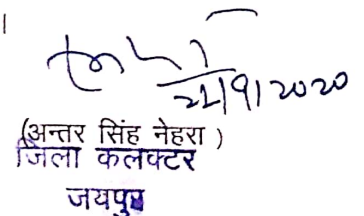 21/9/2020
(अन्तर सिंह नेहरा )
जिला कलक्टर
जयपुर